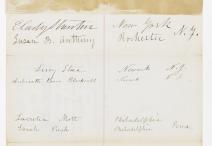 E Cady Stanton New York
Susan B. Anthony Rochester N.Y.
Lucy Stone Newark N.J.
Antoinette Brown Blackwell Newark
Lucretia Mott Philadelphia
Sarah Pugh Philadelphia Penn